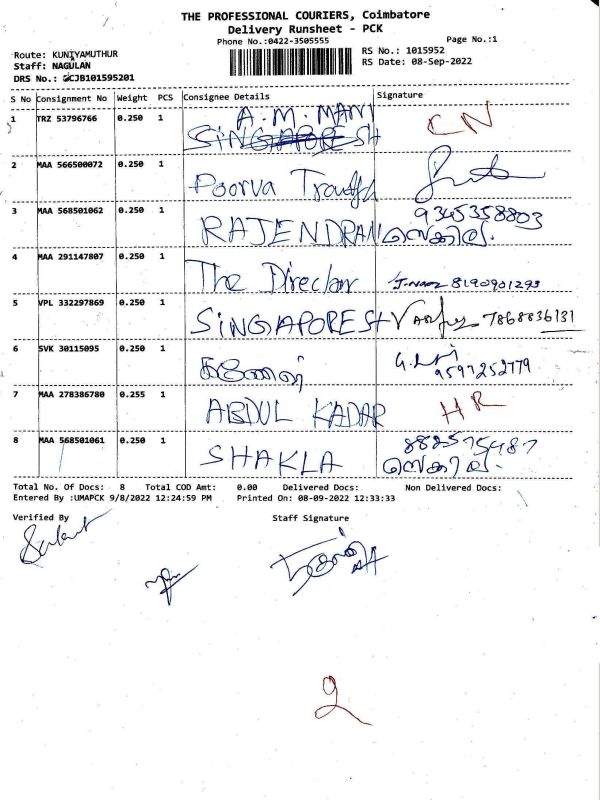 THE PROFESSIONAL COURIERS, Coimbatore
Delivery Runsheet - PCK
Phone No.:0422-3505555
Page No.:1
Route: KUNIYAMUTHUR
RS No.: 1015952
Staff: NAGULAN
RS Date: 08-Sep-2022
DRS No.: CJB101595201
S No Consignment No Weight PCS Consignee Details Signature
A.M. MANI
1 TRZ 53796766 0.250 1 CN
2 MAA 566500072 0.250 1 Poorva
3 MAA 568501062 0.250 1 RAJENDRAN 9345358803
4 MAA 291147807 0.250 1 The Director 8190901293
5 VPL 332297869 0.250 1 SINGAPORE SH 7868836131
6 SVK 30115095 0.250 1 9597252779
7 MAA 278386780 0.255 1 ABDUL KADAR HR
8 MAA 568501061 0.250 1 SHAKLA
Total No. Of Docs: 8 Total COD Amt: 0.00 Delivered Docs: Non Delivered Docs:
Entered By :UMAPCK 9/8/2022 12:24:59 PM Printed On: 08-09-2022 12:33:33
Verified By Staff Signature
2